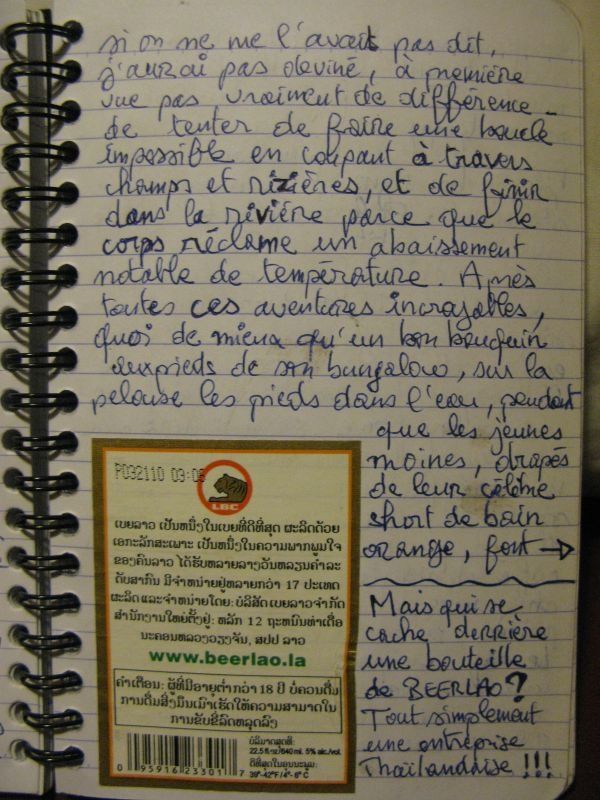 si on ne me l'avait pas dit,
j'aurai pas deviné, à première
vue pas vraiment de différence -
de tenter de faire une boucle
impossible en coupant à travers
champs et rizières, et de finir
dans la rivière parce que le
corps réclame un abaissement
notable de température. Après
toutes ces aventures incroyables,
quoi de mieux qu'un bon bouquin
aux pieds de son bungalow, sur la
pelouse les pieds dans l'eau, pendant
que les jeunes
moines, drapés
de leur célème
short de bain
orange, font →
Mais qui se
cache derrière
une bouteille
de BEERLAO ?
Tout simplement
une entreprise
Thaïlandaise !!!
P032110 03:05
LBC
ເບຍລາວ ເປັນຫນຶ່ງໃນເບຍທີ່ດີທີ່ສຸດ ຜະລິດດ້ວຍ
ເອກະລັກສະເພາະ ເປັນຫນຶ່ງໃນຄວາມພາກພູມໃຈ
ຂອງຄົນລາວ ໄດ້ຮັບຫລາຍລາງວັນຫລຽນຄຳລະ
ດັບສາກົນ ມີຈຳຫນ່າຍຢູ່ຫລາຍກວ່າ 17 ປະເທດ
ຜະລິດ ແລະຈຳຫນ່າຍໂດຍ: ບໍລິສັດ ເບຍລາວຈຳກັດ
ສຳນັກງານໃຫຍ່ຕັ້ງຢູ່: ຫລັກ 12 ຖະຫນົນທ່າເດື່ອ
ນະຄອນຫລວງວຽງຈັນ, ສປປ ລາວ
www.beerlao.la
ຄຳເຕືອນ: ຜູ້ທີ່ມີອາຍຸຕ່ຳກວ່າ 18 ປີ ບໍ່ຄວນດື່ມ
ການດື່ມສິ່ງມຶນເມົາເຮັດໃຫ້ຄວາມສາມາດໃນ
ການຂັບຂີ່ລົດຫລຸດລົງ
ບໍລິມາດສຸດທິ:
22.5 fl.oz/640 ml. 5% alc./vol.
ດີທີ່ສຸດໃນອຸນນະພູມ:
39°-42°F/4°- 6° C
0 95916 23301 7